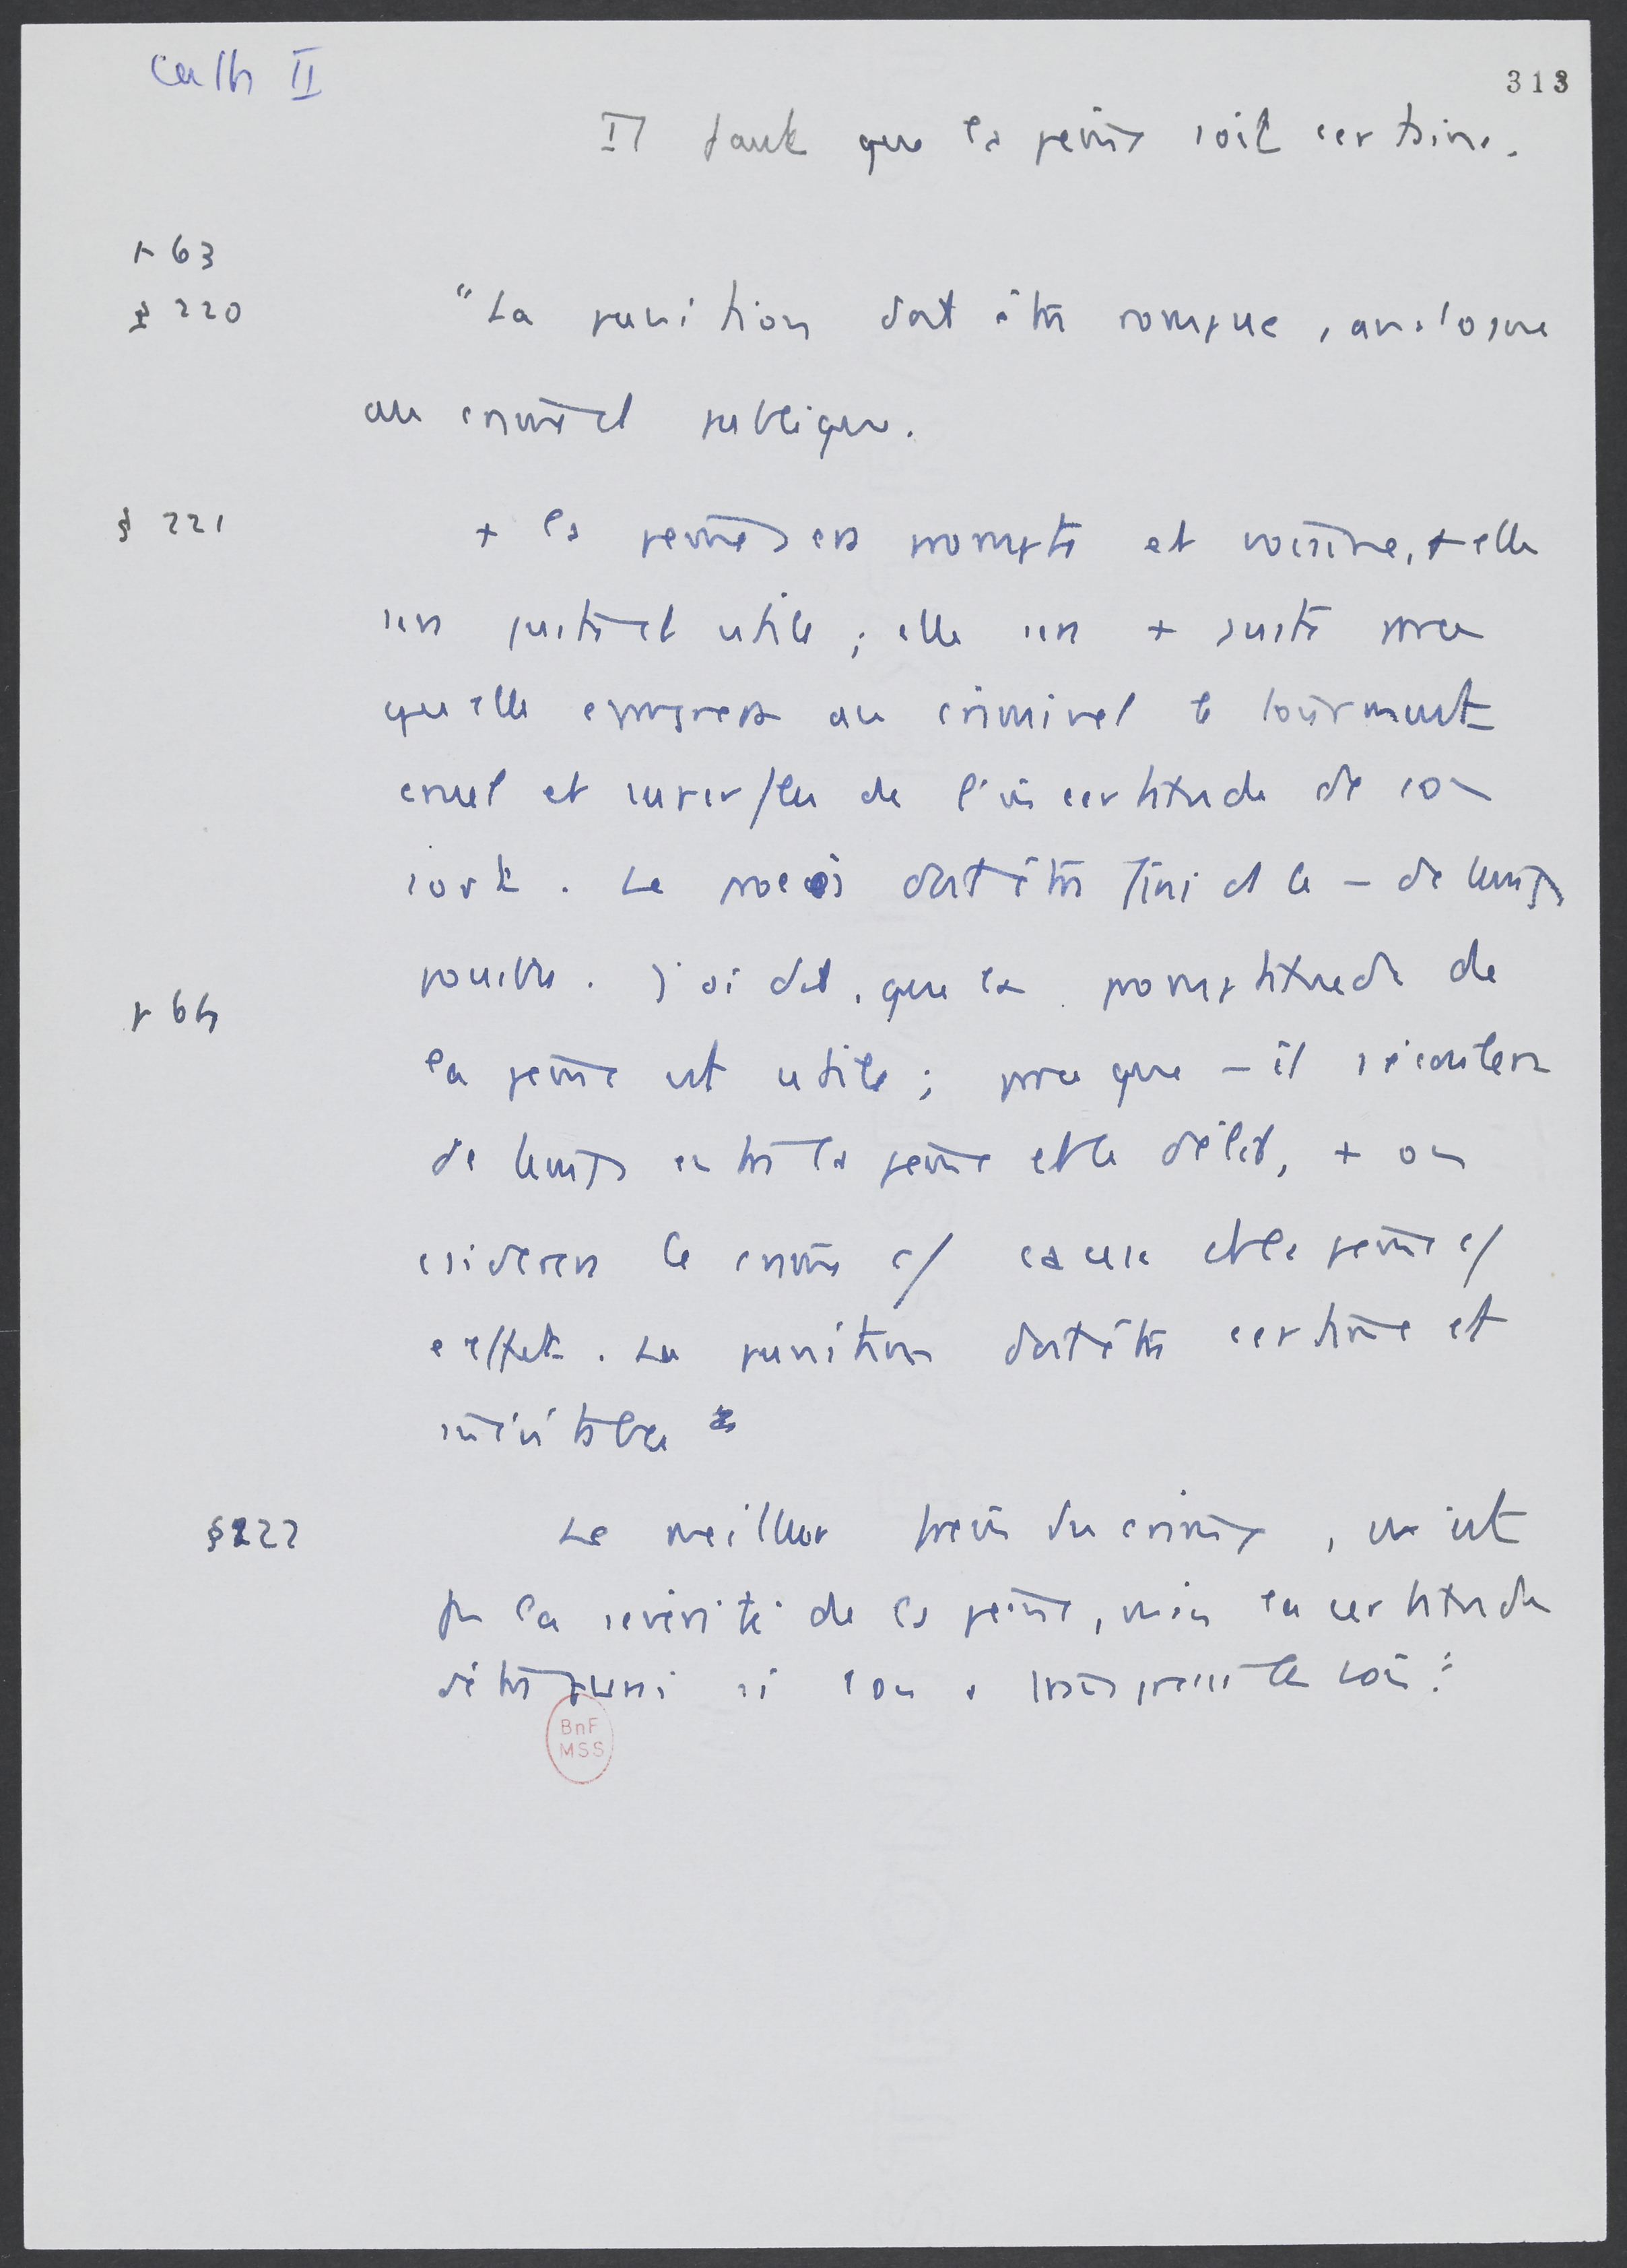 Cath II
313
Il faut que la peine soit certaine.
p 63
§ 220
"La punition doit être prompte, analogue
au crime et publique.
§ 221
+ la peine sera prompte et voisine, + elle
sera juste et utile ; elle sera + juste parce
qu'elle epargnera au criminel le tourment
cruel et superflu de l'incertitude de son
sort. Le procès doit être fini ds le – de temps
possible. J'ai dit, que la promptitude de
p 64
la peine est utile ; parce que – il s'écoulera
de temps entre la peine et le délit, + on
csiderera le crime c/ cause et la peine c/
effet. La punition doit être certaine et
inévitable
§ 222
Le meilleur frein du crime, ce n'est
pas la sévérité de la peine, mais la certitude
d'être puni si l'on a transgressé les lois."
BnF
MSS